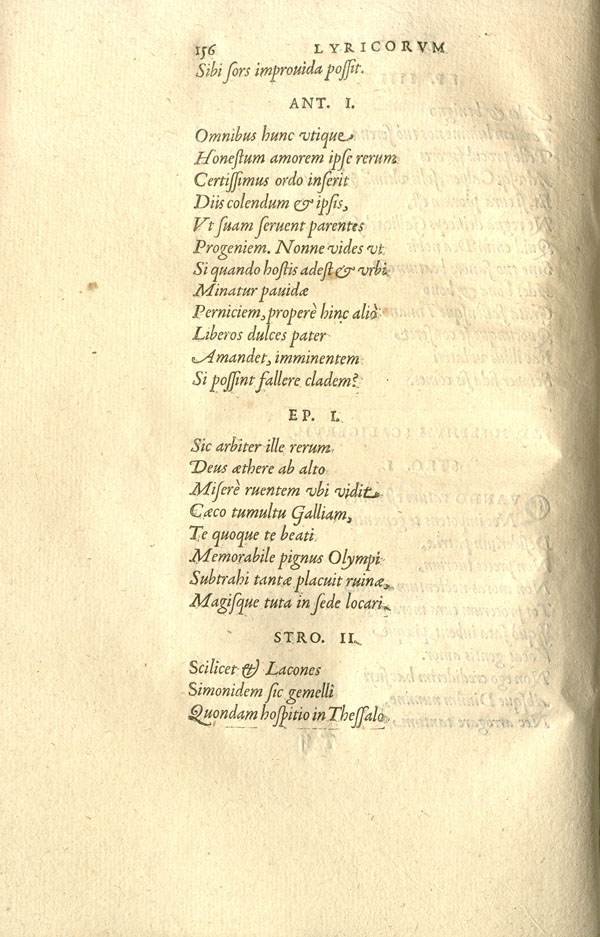 156 LYRICORVM
Sibi ſors improuida poſſit.
ANT. I.
Omnibus hunc vtique
Honeſtum amorem ipſe rerum
Certiſſimus ordo inſerit
Diis colendum & ipſis,
Vt ſuam ſeruent parentes
Progeniem. Nonne vides vt
Si quando hoſtis adeſt & vrbi
Minatur pauidæ
Perniciem, properè hinc aliò
Liberos dulces pater
Amandet, imminentem
Si poſſint fallere cladem?
EP. I.
Sic arbiter ille rerum
Deus æthere ab alto
Miſerè ruentem vbi vidit
Cæco tumultu Galliam,
Te quoque te beati
Memorabile pignus Olympi
Subtrahi tantæ placuit ruinæ,
Magiſque tuta in ſede locari.
STRO. II.
Scilicet & Lacones
Simonidem ſic gemelli
Quondam hoſpitio in Theſſalo